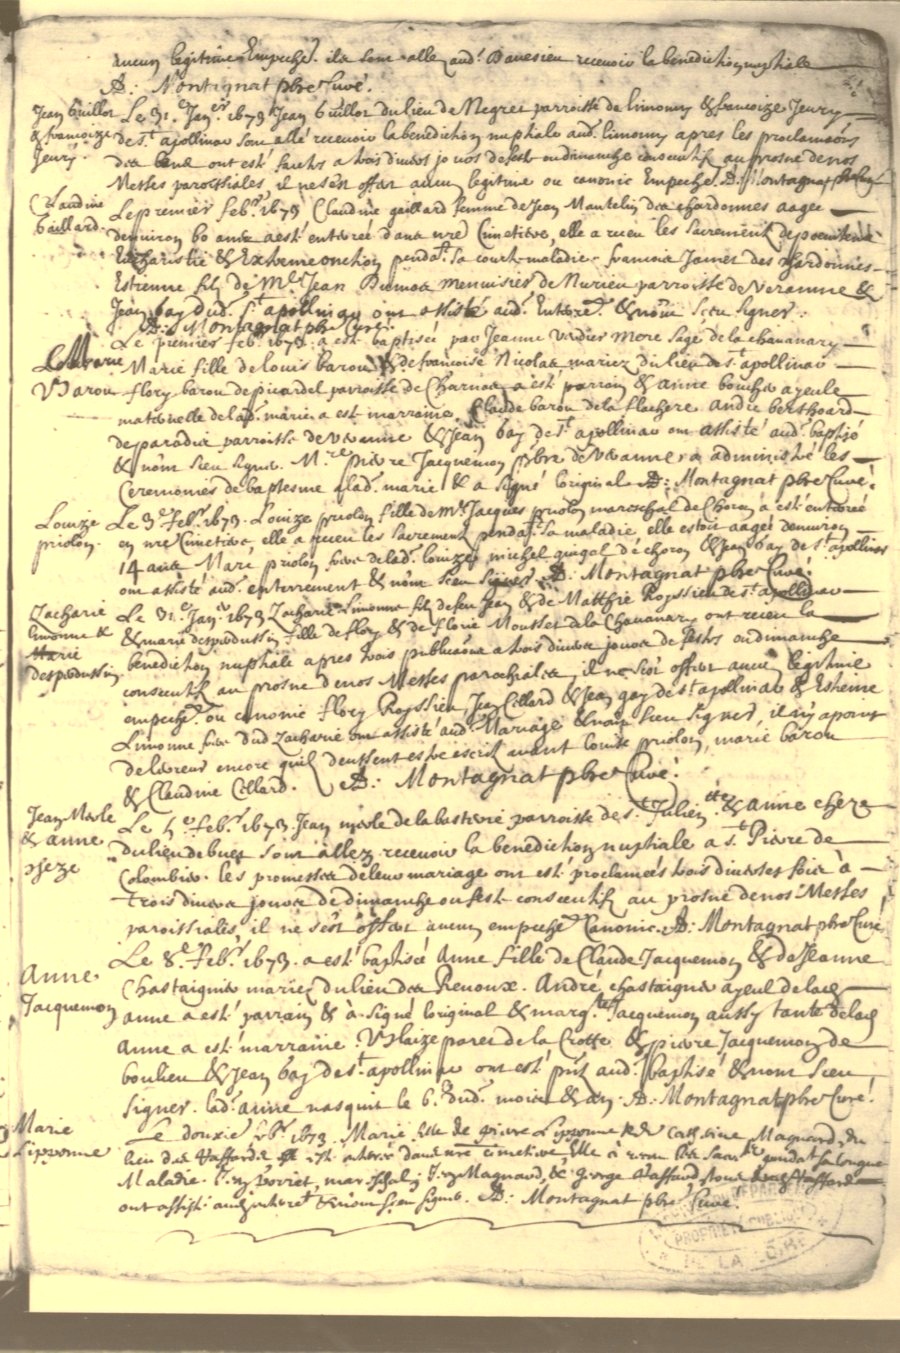 aucun legitime Empeschet. ils sont allé aud. recevoir la benediction nuptiale
A: Montagnat pbre Curé.
Jean Guillot & francoize Jeury.
Le 31.e Janer 1673 Jean Guillot du lieu de Negret parroisse de limony & francoize Jeury
de st. apollinar sont allé recevoir la benediction nuptiale aud. limony apres les proclamaons
ont esté faictes a trois divers jours de feste ou dimanche consecutifs au prosne de nos
Messes paroissiales, il ne s'est offert aucun legitime ou canonic Empeschet. A: Montagnat pbre Curé
Claudine Gaillard.
Le premier febr. 1673 Claudine gaillard femme de Jean Mantelin des chardonnes aagee
denviron 60 ans a esté enterrée dans nre Cimetiere, elle a receu les sacrements de poenitence
Eucharistie & Extremeonction pendat. sa courte maladie. francois Jamet des chardonnes
Estienne fils de Mre Jean menuisier de parroisse de veranne &
Jean gay dud. st. apollinar ont assisté aud. Enterret. & n'ont sceu signer.
A: Montagnat pbre Curé.
Marie Baron
Le premier feb. 1673. a esté baptisée par Jeanne verdier mere sage de la chavanary
Marie fille de louis baron & de francoise Nicolas mariez du lieu de st. apollinar
flory baron de picardel parroisse de Charnas a esté parrain & anne boucher ayeule
maternelle de lad. marie a esté marraine, Claude baron de la flachere andre berthoard
de paradis parroisse de veranne & Jean gay de st. apollinar ont assisté aud. baptisé
& n'ont sceu signer. Mre pierre Jacquemon pbre de veanne a administré les
Ceremonies de baptesme a lad. marie & a signé loriginal A: Montagnat pbre Curé.
Louize priolon.
Le 3e. Febr. 1673. Louize priolon fille de Mre Jacques priolon mareschal de Choron a esté enterrée
en nre Cimetiere, elle a receu les sacrements pendat. sa maladie, elle estoit aagee denviron
14 ans Marc priolon frere de lad. louize, michel guigal de choron & Jean gay de st. apollinar
ont assisté aud. enterrement & n'ont sceu signer A: Montagnat pbre Curé.
Zacharie limonne & Marie despeudussin
Le 31.e Janer 1673 Zacharie Limonne fils de feu Jean & de Matthie Royssieu de st. apollinar
& marie despeudussin fille de flory & de florie Mousset de la Chavanary ont receu la
benediction nuptiale apres trois publicaons a trois divers jours de festes ou dimanche
consecutifs au prosne de nos Messes parochiales, il ne s'est offert aucun legitime
empeschet. ou canonic flory Royssieu, Jean Cellard & Jean gay de st apollinar & Estienne
Limonne frere dud Zacharie ont assisté aud. Mariage & n'ont sceu signer, il n'y a point
derreur encore quil deussent estre escrits avant louize priolon, marie baron
& Claudine Cellard. A: Montagnat pbre Curé.
Jean Merle & anne cheze
Le 5e. febr. 1673. Jean merle de la basterie parroisse de st. Julien & anne cheze
du lieu de buet sont allez recevoir la benediction nuptiale a st. Pierre de
Colombier. les promesses de leur mariage ont esté proclamées trois diverses fois à
trois divers jours de dimanche ou feste consecutifs au prosne de nos Messes
paroissiales, il ne s'est offert aucun empeschet. Canonic. A: Montagnat pbre Curé
Anne Jacquemon
Le 8e. Febr. 1673. a esté baptisée Anne fille de Claude Jacquemon & de Jeanne
Chastaignier mariez du lieu des Renoux. André chastaignier ayeul de lad.
anne a esté parrain & à signé loriginal & margte. Jacquemon aussy tante de lad.
Anne a esté marraine. Vslaize de la Crotte & pierre Jacquemon de
boulieu & Jean gay de st. apollinar ont esté pnts aud. baptisé & n'ont sceu
signer. lad. anne nasquit le 6e. dud. mois & an. A: Montagnat pbre Curé.
Marie Lipponne
Le douzie feb. 1673. Marie fille de pierre Lipponne & de Catherine Magnard, du
lieu des a esté enterrée dans nre cimetiere elle à receu les sacrets pendat sa longue
Maladie. Magnard, & george
ont assisté aud. enterret & n'ont sceu signer. A: Montagnat pbre Curé.
PROPRIÉTÉ PUBLIQUE
DE LA LOIRE